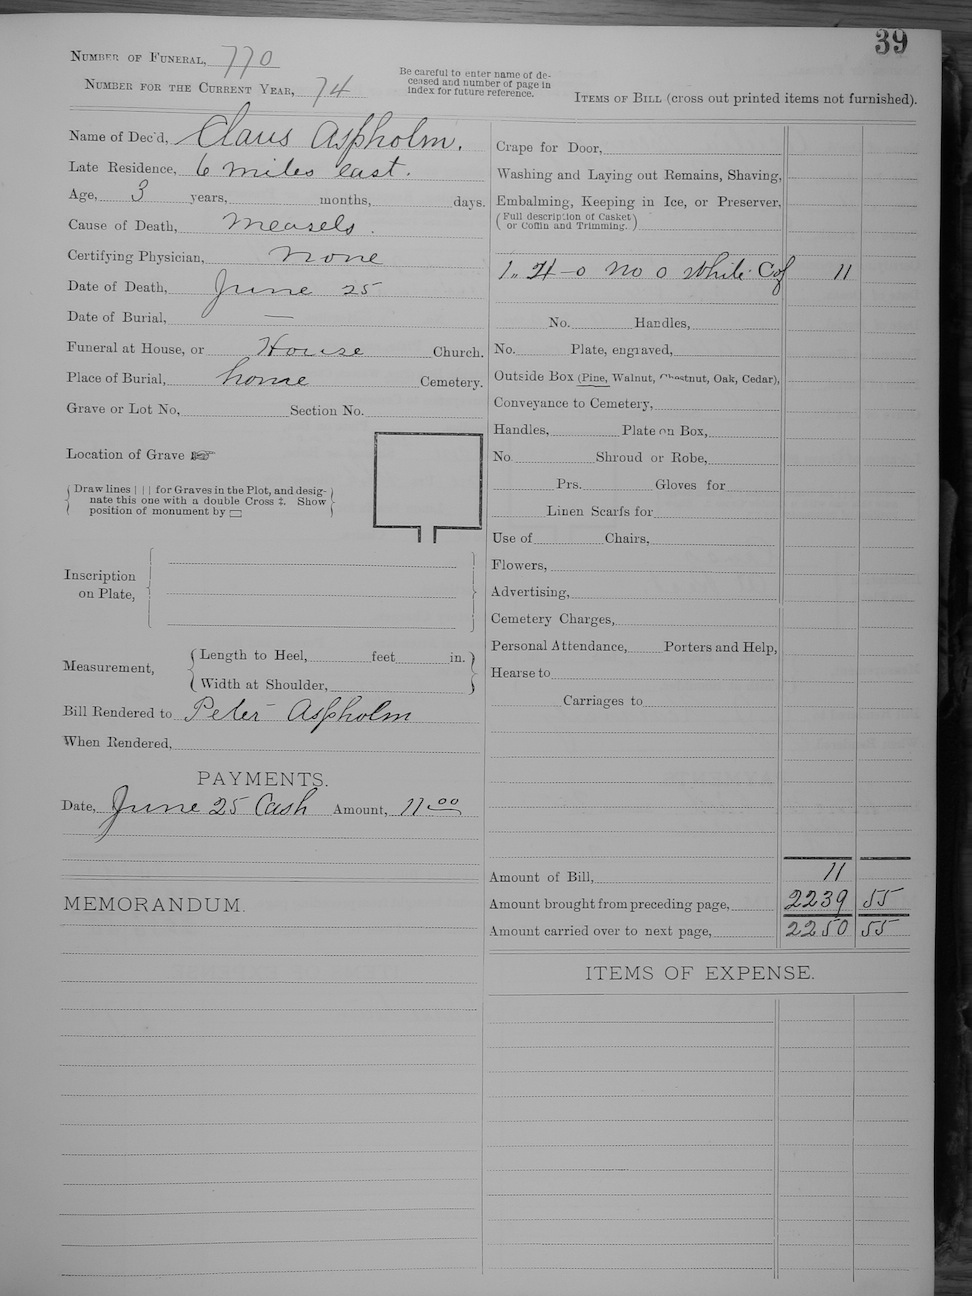 39
NUMBER OF FUNERAL, 770
NUMBER FOR THE CURRENT YEAR, 74
Be careful to enter name of de-
ceased and number of page in
index for future reference.
ITEMS OF BILL (cross out printed items not furnished).
Name of Dec'd, Claus Aspholm.
Late Residence, 6 miles east.
Age, 3 years, months, days.
Cause of Death, Measels.
Certifying Physician, None
Date of Death, June 25
Date of Burial, —
Funeral at House, or House Church.
Place of Burial, home Cemetery.
Grave or Lot No, Section No.
Location of Grave ☞
Draw lines | | | for Graves in the Plot, and desig-
nate this one with a double Cross ‡. Show
position of monument by ▭
Inscription
on Plate,
Measurement,
Length to Heel, feet in.
Width at Shoulder,
Bill Rendered to Peter Aspholm
When Rendered,
PAYMENTS.
Date, June 25 Cash Amount, 11.00
MEMORANDUM.
Crape for Door,
Washing and Laying out Remains, Shaving,
Embalming, Keeping in Ice, or Preserver,
(Full description of Casket
or Coffin and Trimming.)
1. 4-0 No 0 White Cof 11
No. Handles,
No. Plate, engraved,
Outside Box (Pine, Walnut, Chestnut, Oak, Cedar),
Conveyance to Cemetery,
Handles, Plate on Box,
No. Shroud or Robe,
Prs. Gloves for
Linen Scarfs for
Use of Chairs,
Flowers,
Advertising,
Cemetery Charges,
Personal Attendance, Porters and Help,
Hearse to
Carriages to
Amount of Bill, 11
Amount brought from preceding page, 2239 55
Amount carried over to next page, 2250 55
ITEMS OF EXPENSE.